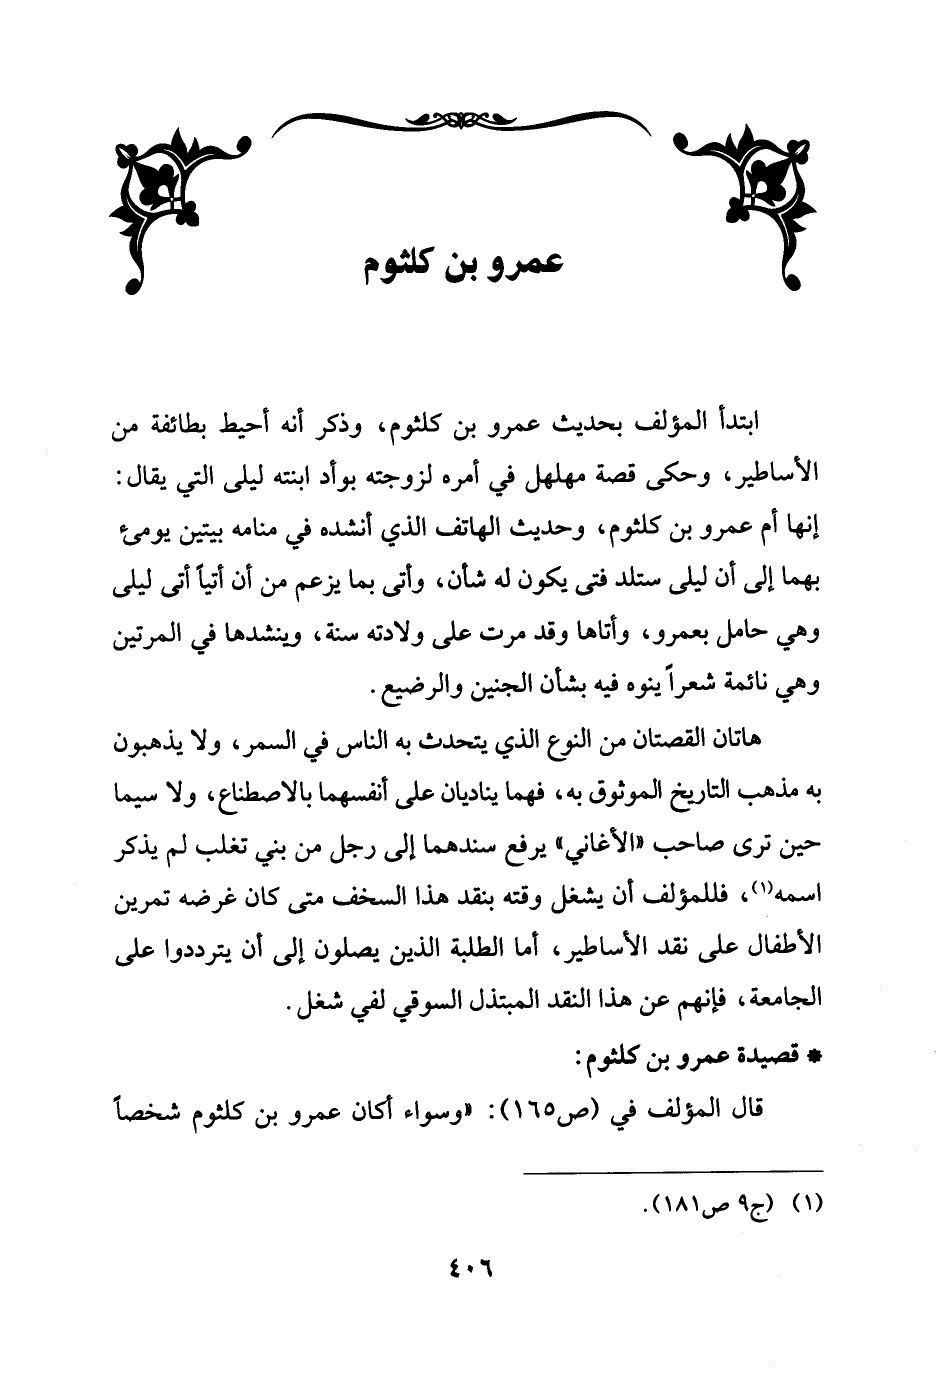 عمرو بن كلثوم
ابتدأ المؤلف بحديث عمرو بن كلثوم، وذكر أنه أحيط بطائفة من
الأساطير، وحكى قصة مهلهل في أمره لزوجته بوأد ابنته ليلى التي يقال:
إنها أم عمرو بن كلثوم، وحديث الهاتف الذي أنشده في منامه بيتين يومئ
بهما إلى أن ليلى ستلد فتى يكون له شأن، وأتى بما يزعم من أن أتياً أتى ليلى
وهي حامل بعمرو، وأتاها وقد مرت على ولادته سنة، وينشدها في المرتين
وهي نائمة شعراً ينوه فيه بشأن الجنين والرضيع.
هاتان القصتان من النوع الذي يتحدث به الناس في السمر، ولا يذهبون
به مذهب التاريخ الموثوق به، فهما يناديان على أنفسهما بالاصطناع، ولا سيما
حين ترى صاحب «الأغاني» يرفع سندهما إلى رجل من بني تغلب لم يذكر
اسمه(١)، فللمؤلف أن يشغل وقته بنقد هذا السخف متى كان غرضه تمرين
الأطفال على نقد الأساطير، أما الطلبة الذين يصلون إلى أن يترددوا على
الجامعة، فإنهم عن هذا النقد المبتذل السوقي لفي شغل.
* قصيدة عمرو بن كلثوم:
قال المؤلف في (ص١٦٥): «وسواء أكان عمرو بن كلثوم شخصاً
(١) (ج٩ ص١٨١).
٤٠٦